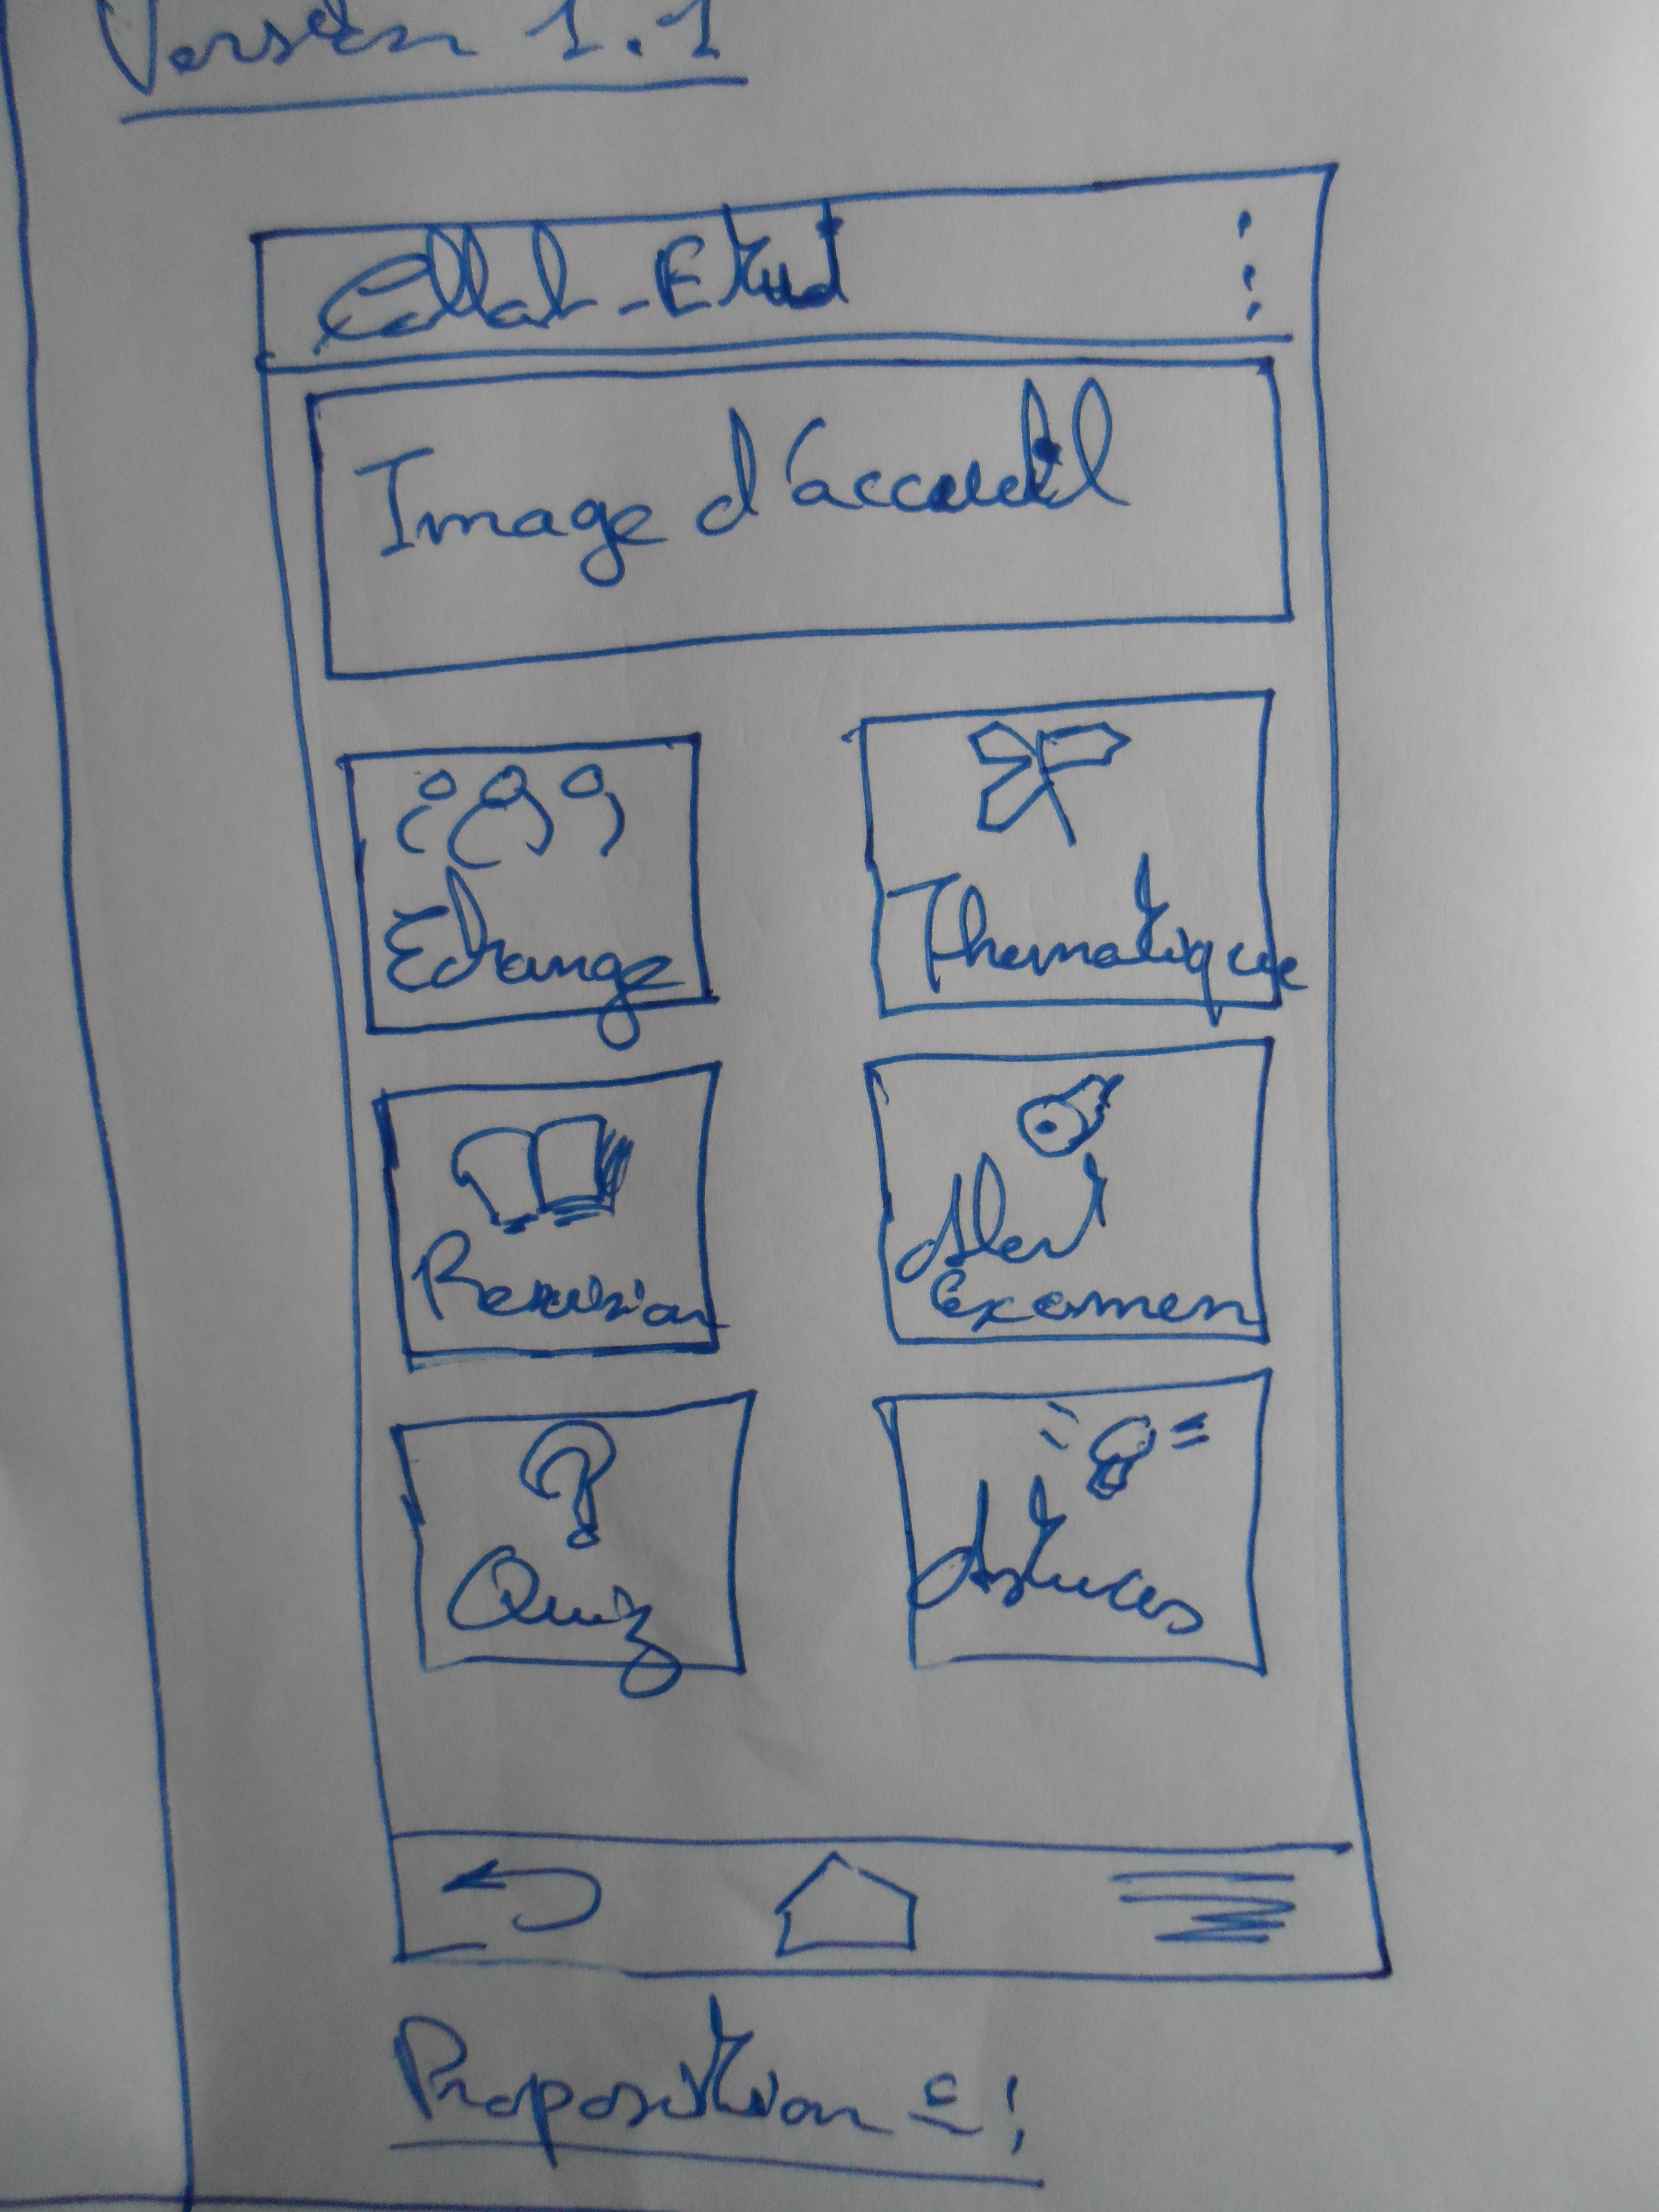 Version 1.1
Collab-Etud
Image d'accueil
Echange
Thematique
Revision
Alert
Examen
Quiz
Astuces
Proposition